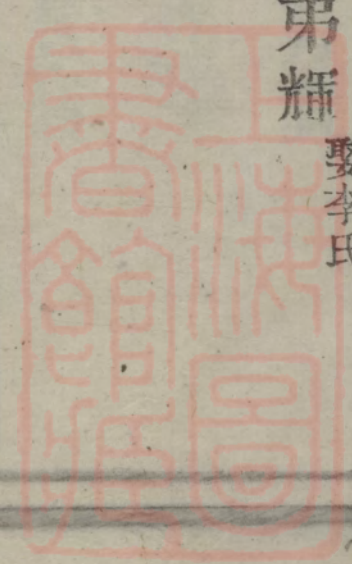 弟輝
娶李氏
上海圖
書館藏